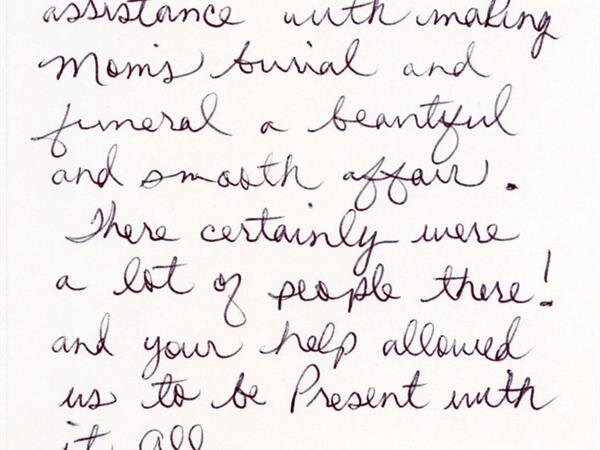 assistance with making
Mom's burial and
funeral a beautiful
and smooth affair.
There certainly were
a lot of people there!
and your help allowed
us to be Present with
it all